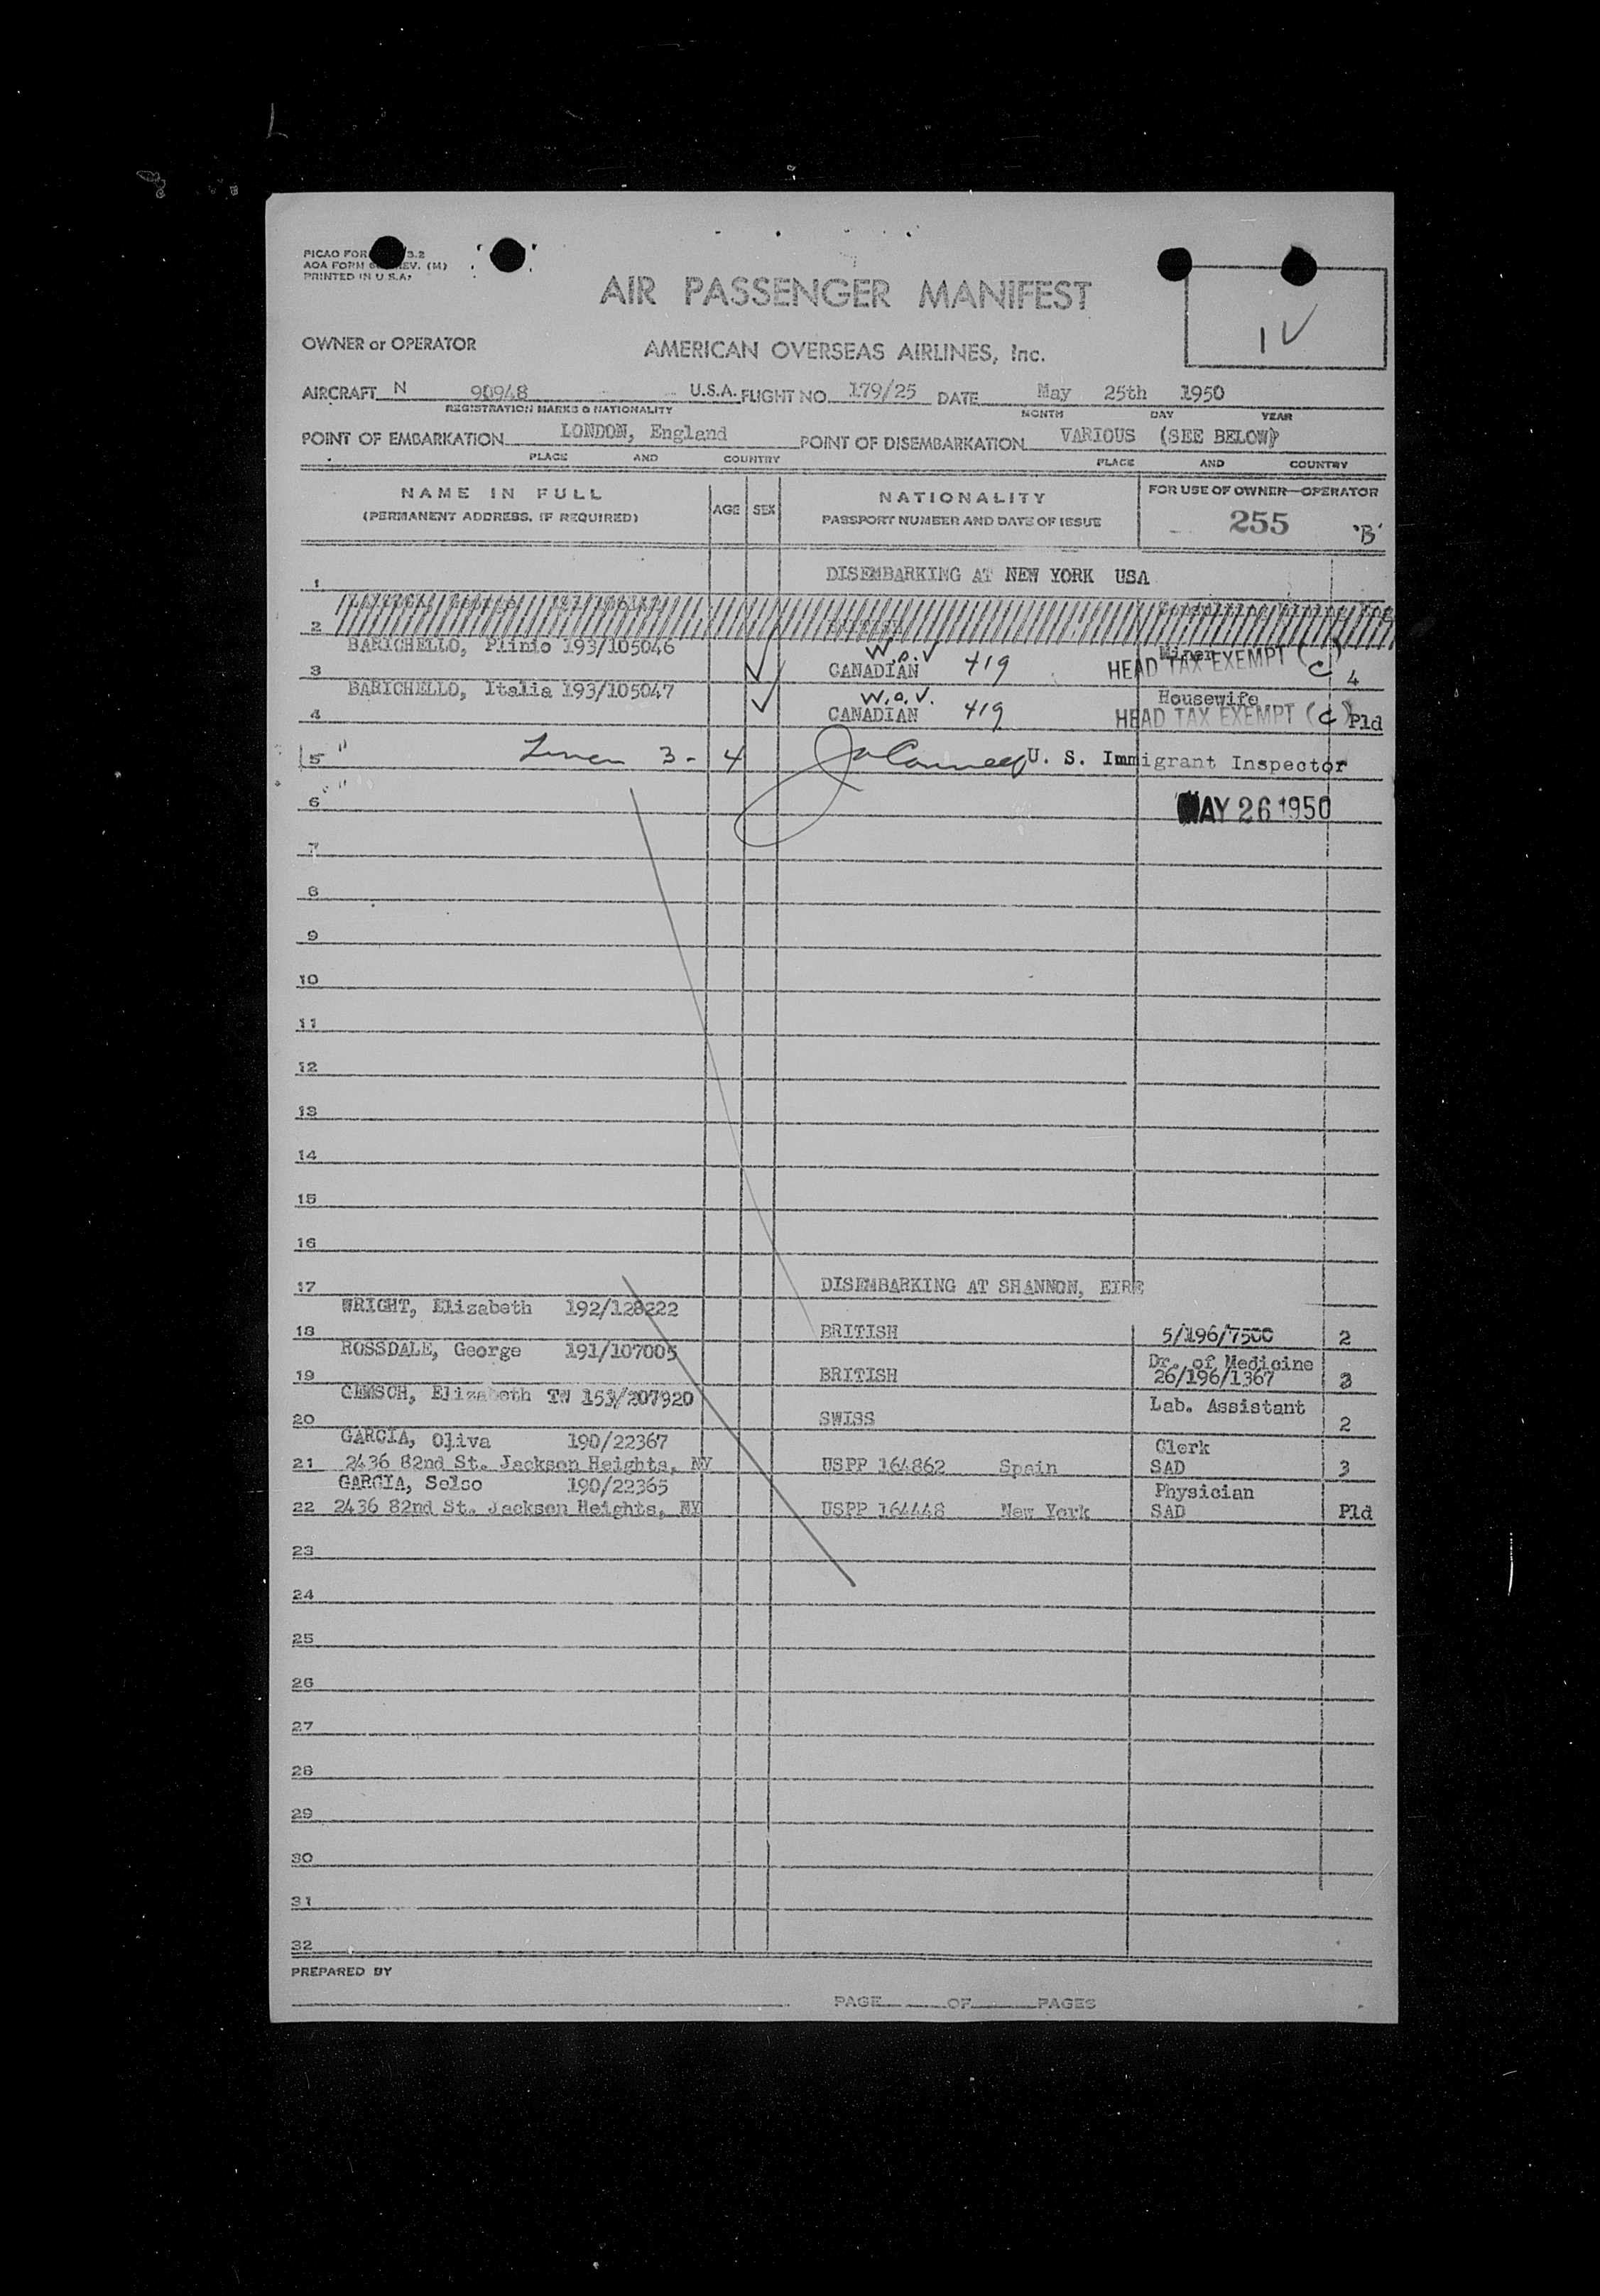 AIR PASSENGER MANIFEST
PRINTED IN U.S.A.
1 V
OWNER or OPERATOR AMERICAN OVERSEAS AIRLINES, Inc.
AIRCRAFT N 90948 U.S.A. FLIGHT NO. 179/25 DATE May 25th 1950
REGISTRATION MARKS & NATIONALITY MONTH DAY YEAR
POINT OF EMBARKATION LONDON, England POINT OF DISEMBARKATION VARIOUS (SEE BELOW)
PLACE AND COUNTRY PLACE AND COUNTRY
NAME IN FULL AGE SEX NATIONALITY FOR USE OF OWNER—OPERATOR
(PERMANENT ADDRESS, IF REQUIRED) PASSPORT NUMBER AND DATE OF ISSUE 255 'B'
1 DISEMBARKING AT NEW YORK USA
2
BARICHELLO, Plinio 193/105046 W.o.V Miner
3 CANADIAN 419 HEAD TAX EXEMPT ( C ) 4
BARICHELLO, Italia 193/105047 W.o.V. Housewife
4 CANADIAN 419 HEAD TAX EXEMPT ( C ) Pld
5 3 - 4 U. S. Immigrant Inspector
6 MAY 26 1950
7
8
9
10
11
12
13
14
15
16
17 DISEMBARKING AT SHANNON, EIRE
WRIGHT, Elizabeth 192/128222
18 BRITISH 5/196/7500 2
ROSSDALE, George 191/107005 Dr. of Medicine
19 BRITISH 26/196/1367 3
GEMSCH, Elizabeth TW 153/207920 Lab. Assistant
20 SWISS 2
GARCIA, Oliva 190/22367 Clerk
21 2436 82nd St. Jackson Heights, NY USPP 164862 Spain SAD 3
GARCIA, Selso 190/22365 Physician
22 2436 82nd St. Jackson Heights, NY USPP 164448 New York SAD Pld
23
24
25
26
27
28
29
30
31
32
PREPARED BY
PAGE OF PAGES